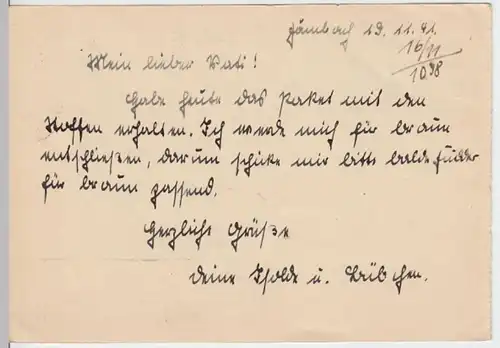 19. 11. 41.
16/11
1098
Mein lieber Vati!
Habe heute das Paket mit den
Stoffen erhalten. Ich werde mich für braun
entschließen, darum schicke mir bitte balde Futter
für braun passend.
Herzliche Grüße
deine Isolde u. Bübchen.